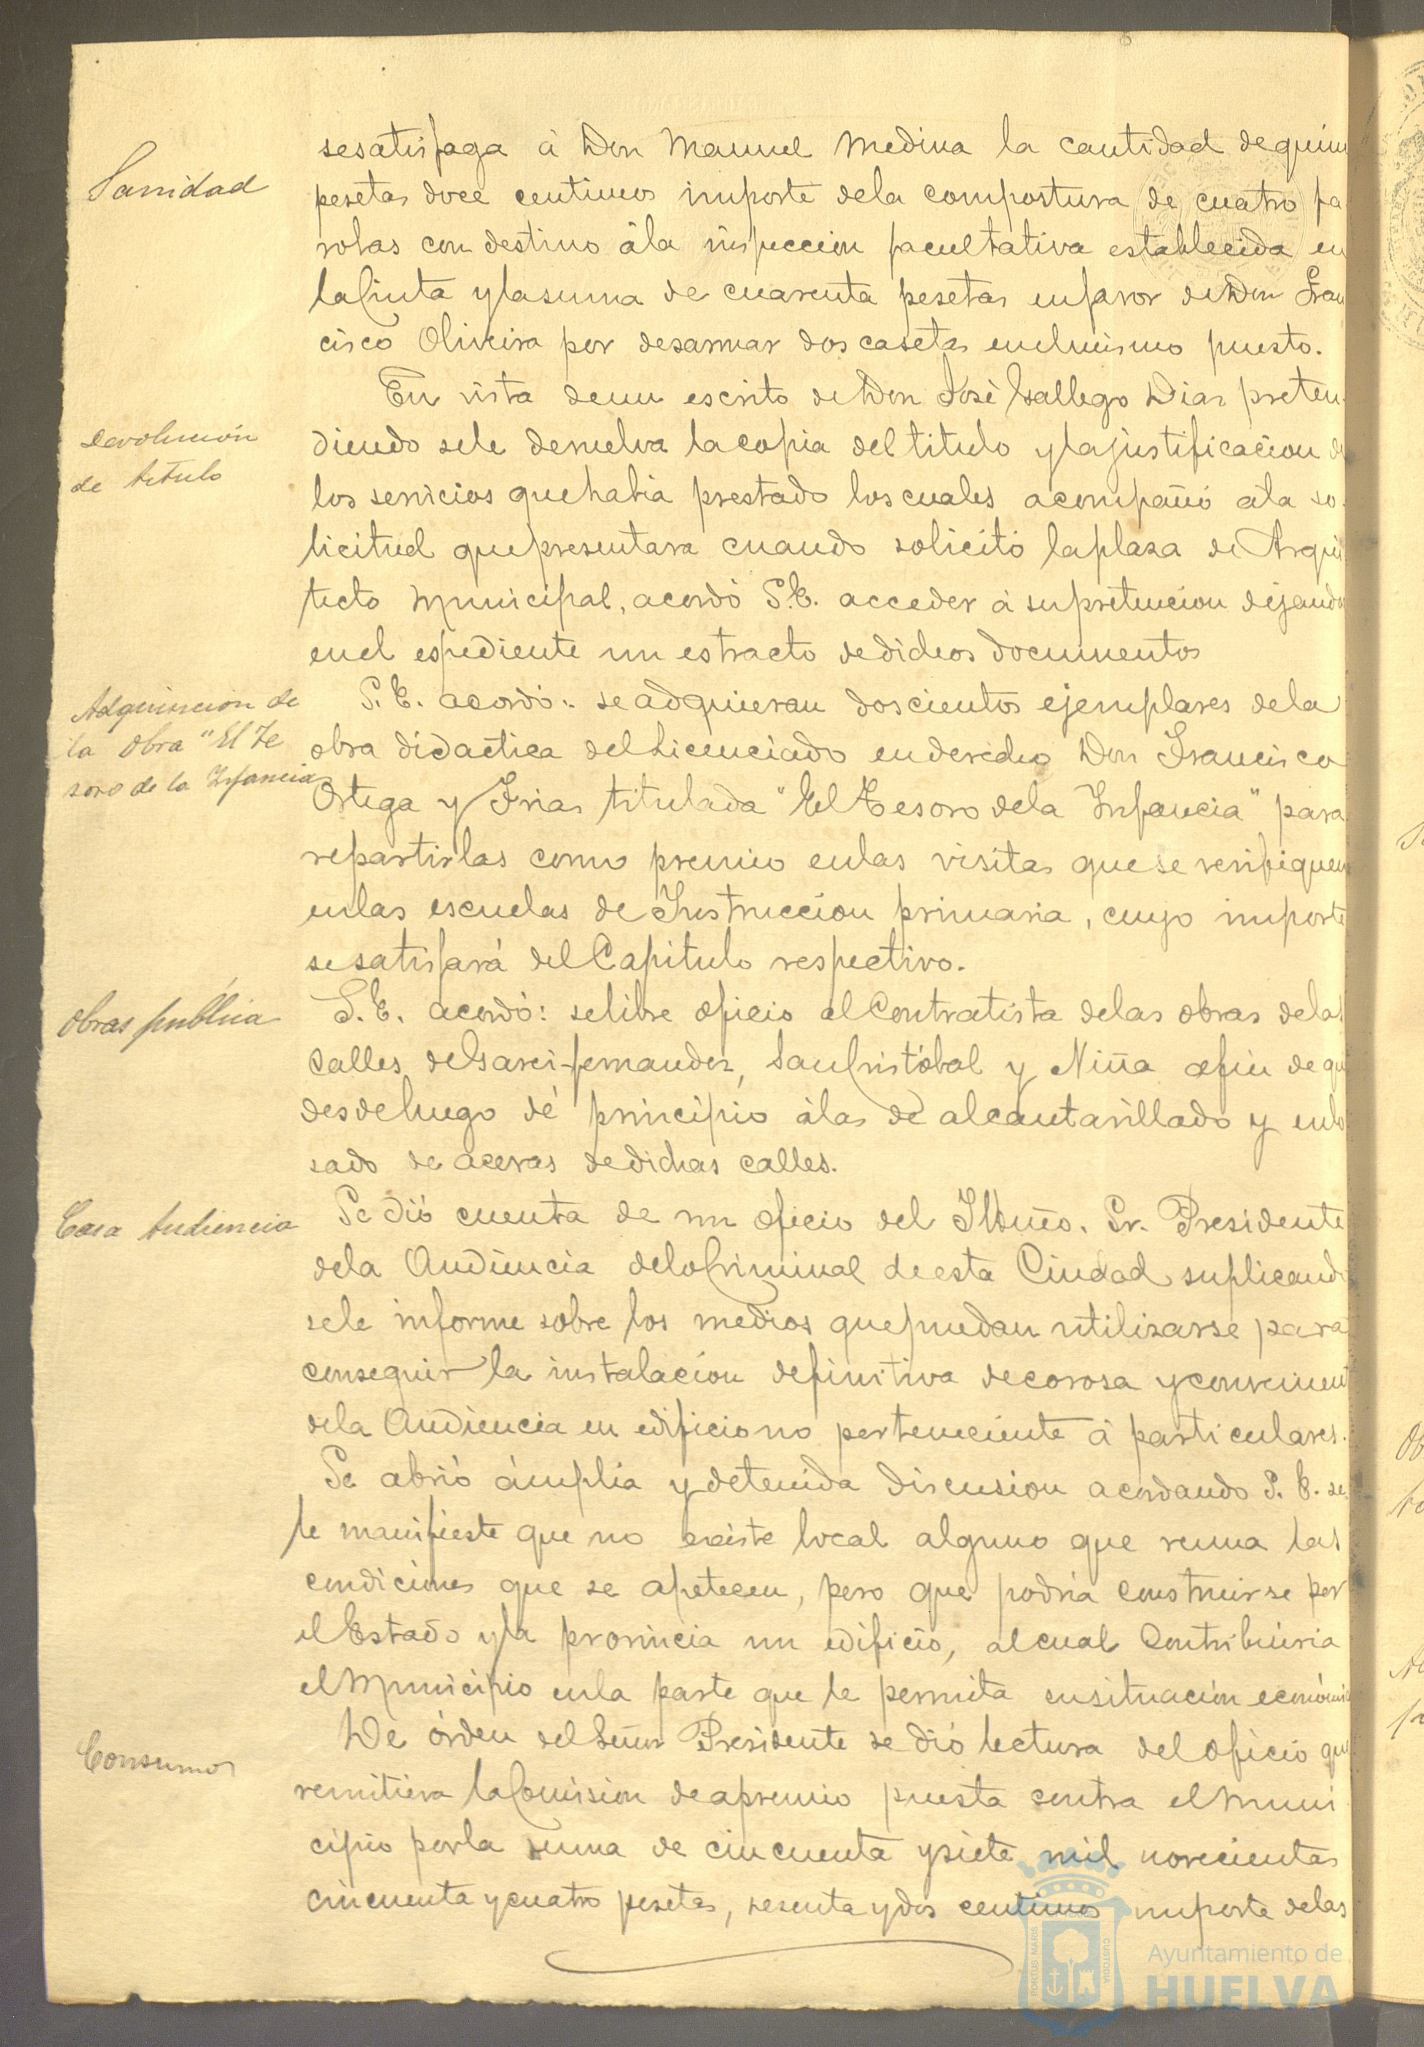 Sanidad
sesatisfaga á Don Manuel Medina la cantidad dequin
pesetas doce centimos importe dela compostura de cuatro fa
rolas con destino ála inspeccion facultativa establecida en
laCinta ylasuma de cuarenta pesetas enfavor deDon Fran
cisco Oliveira por desarmar dos casetas enelmismo puesto.
Devolución
de titulo
En vista deun escrito deDon José Gallego Diaz preten
diendo sele devuelva lacopia del titulo ylajustificacion de
los servicios quehabia prestado loscuales acompañó ála so
licitud quepresentara cuando solicitó laplaza de Arqui
tecto Municipal, acordó S.E. acceder á supretencion dejando
enel espediente un estracto dedichos documentos
Adquisicion de
la obra "El Te
soro de la Infancia
S.E. acordó: se adquieran doscientos ejemplares dela
obra didactica del Licenciado enderecho Don Francisco
Ortega y Frias titulada "El Tesoro dela Infancia" para
repartirlas como premio enlas visitas que se verifiquen
enlas escuelas de Instruccion primaria, cuyo importe
sesatisfará del Capitulo respectivo.
Obras publica
S.E. acordó: selibre oficio alContratista delas obras delas
calles deGarci-fernandez, SanCristóbal y Niña afin de qu
desdeluego dé principio álas de alcantarillado y enlo
sado de aceras dedichas calles.
Casa Audiencia
Se dió cuenta de un oficio del Iltmo. Sr. Presidente
dela Audiencia deloCriminal deesta Ciudad suplicando
sele informe sobre los medios quepuedan utilizarse para
conseguir la instalacion definitiva decorosa yconvenient
dela Audiencia en edificiono perteneciente á particulares.
Se abrió ámplia y detenida discusion acordando S.E. se
le manifieste que no existe local alguno que reuna las
condiciones que se apetecen, pero que podria construirse por
elEstado yla provincia un edificio, alcual Contribuiria
elMunicipio enla parte que le permita susituacion económic
Consumos
De órden delSeñor Presidente se dió lectura deloficio qu
remitiera laComision deapremio puesta contra elMuni
cipio porla suma de cincuenta ysiete mil novecientas
cincuenta ycuatro pesetas, sesenta ydos centimos importe delas
PORTUS MARIS
CUSTODIA
Ayuntamiento de
HUELVA